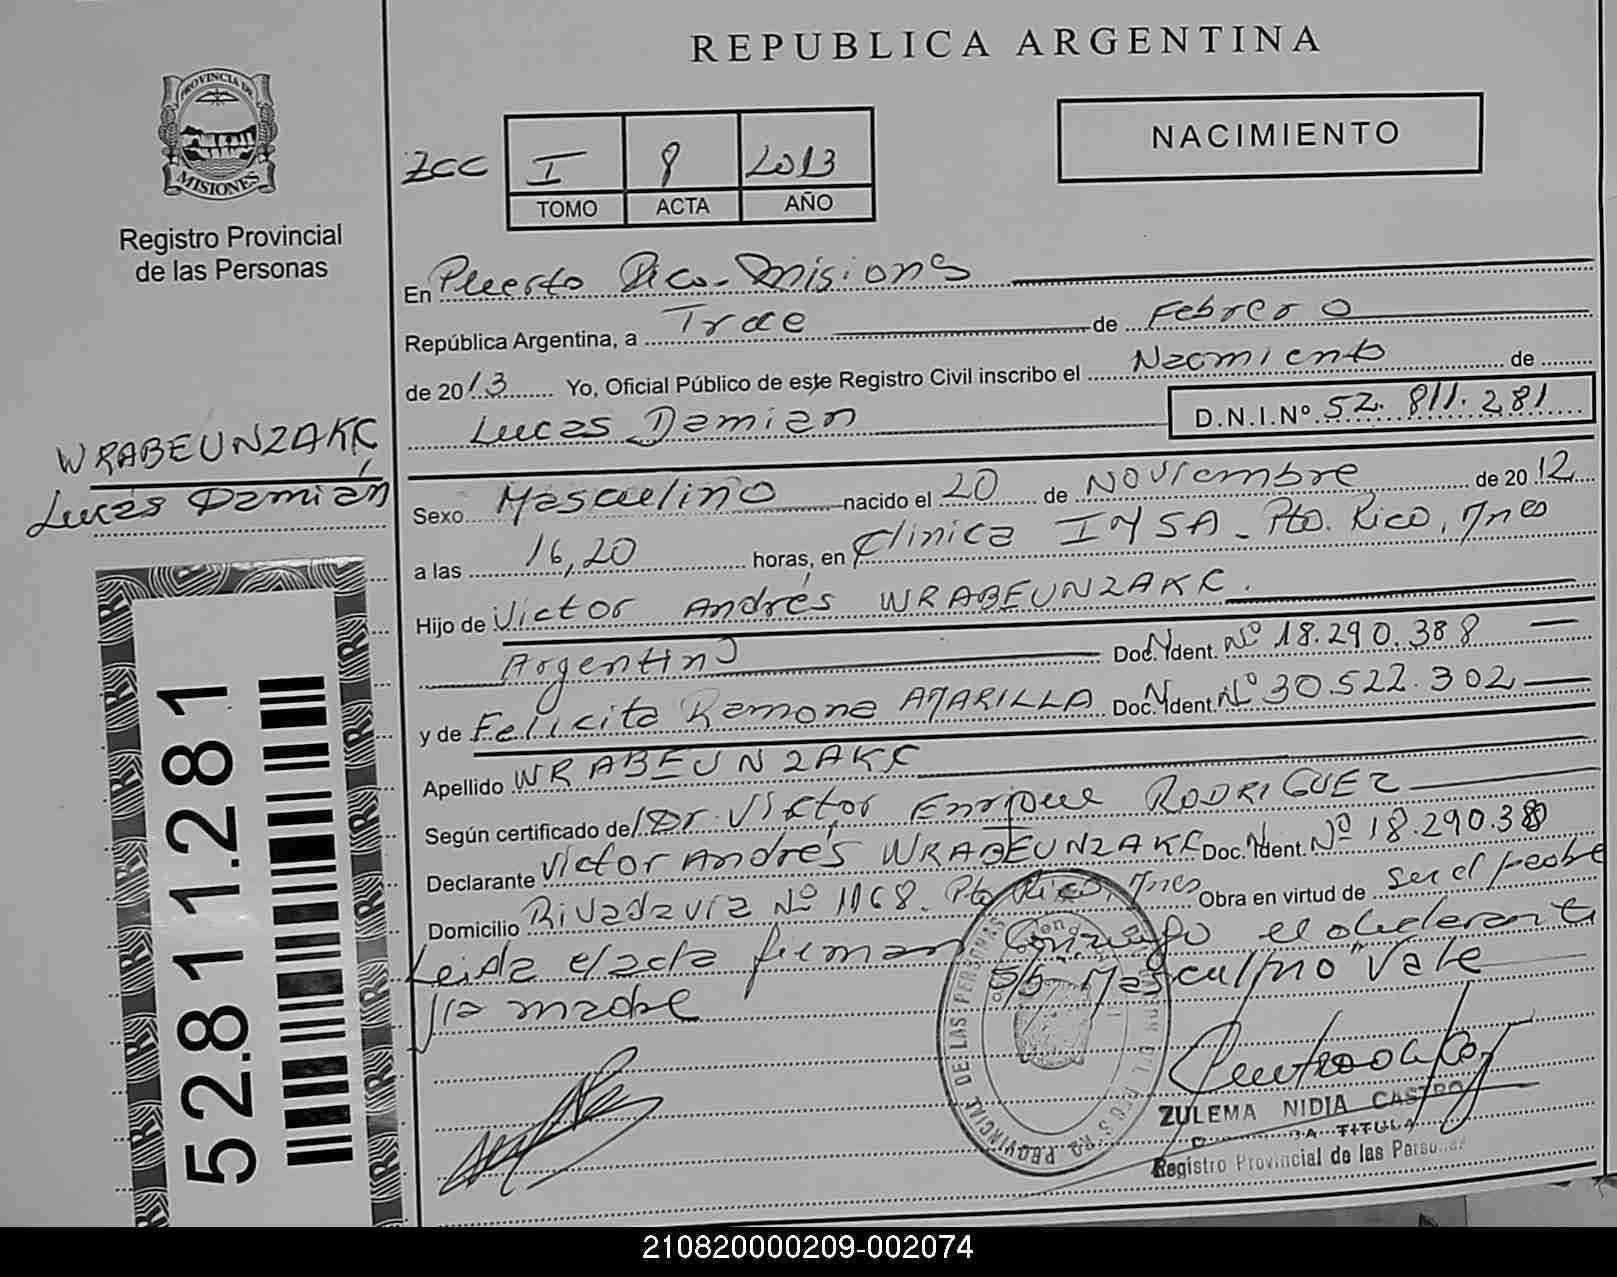 REPUBLICA ARGENTINA
PROVINCIA DE
MISIONES
Registro Provincial
de las Personas
NACIMIENTO
ZCC I 8 2013
TOMO ACTA AÑO
En Puerto Rico - Misiones
República Argentina, a Trece de Febrero
de 2013 Yo, Oficial Público de este Registro Civil inscribo el Nacimiento de
Lucas Damian D.N.I.Nº 52.811.281
WRABEUNZAKC
Lucas Damián
Sexo Masculino nacido el 20 de Noviembre de 2012
a las 16,20 horas, en Clinica IMSA - Pto. Rico, Mnes
Hijo de Victor Andrés WRABEUNZAKC.
Argentino Doc. Ident. Nº 18.290.388
y de Felicita Ramona AMARILLA Doc. Ident. Nº 30.522.302
Apellido WRABEUNZAKC
Según certificado de/ Dr. Victor Enrique RODRIGUEZ
Declarante Victor Andrés WRABEUNZAKC Doc. Ident. Nº 18.290.388
Domicilio Rivadavia Nº 1168. Pto Rico, Mnes Obra en virtud de ser el padre
Leida el acta firman conmigo el declarante
y la madre S/b "Masculino" Vale
52.811.281
PROVINCIAL DE LAS PERSONAS
ZULEMA NIDIA CASTRO
TITULA
Registro Provincial de las Personas
210820000209-002074